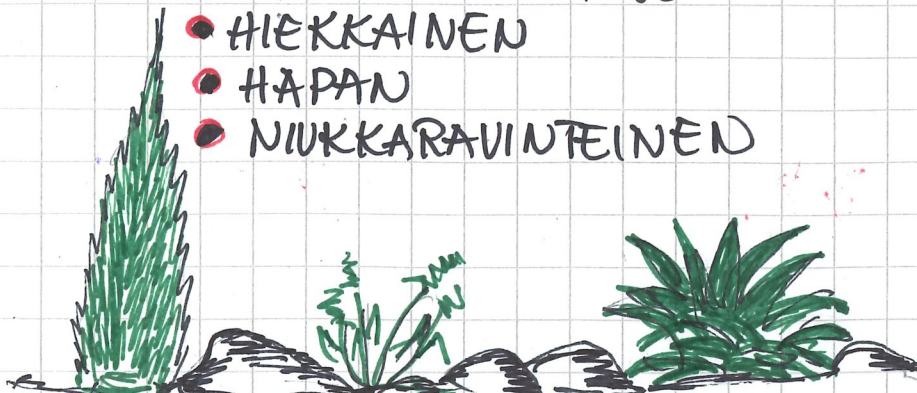 • HIEKKAINEN
• HAPAN
• NIUKKARAVINTEINEN